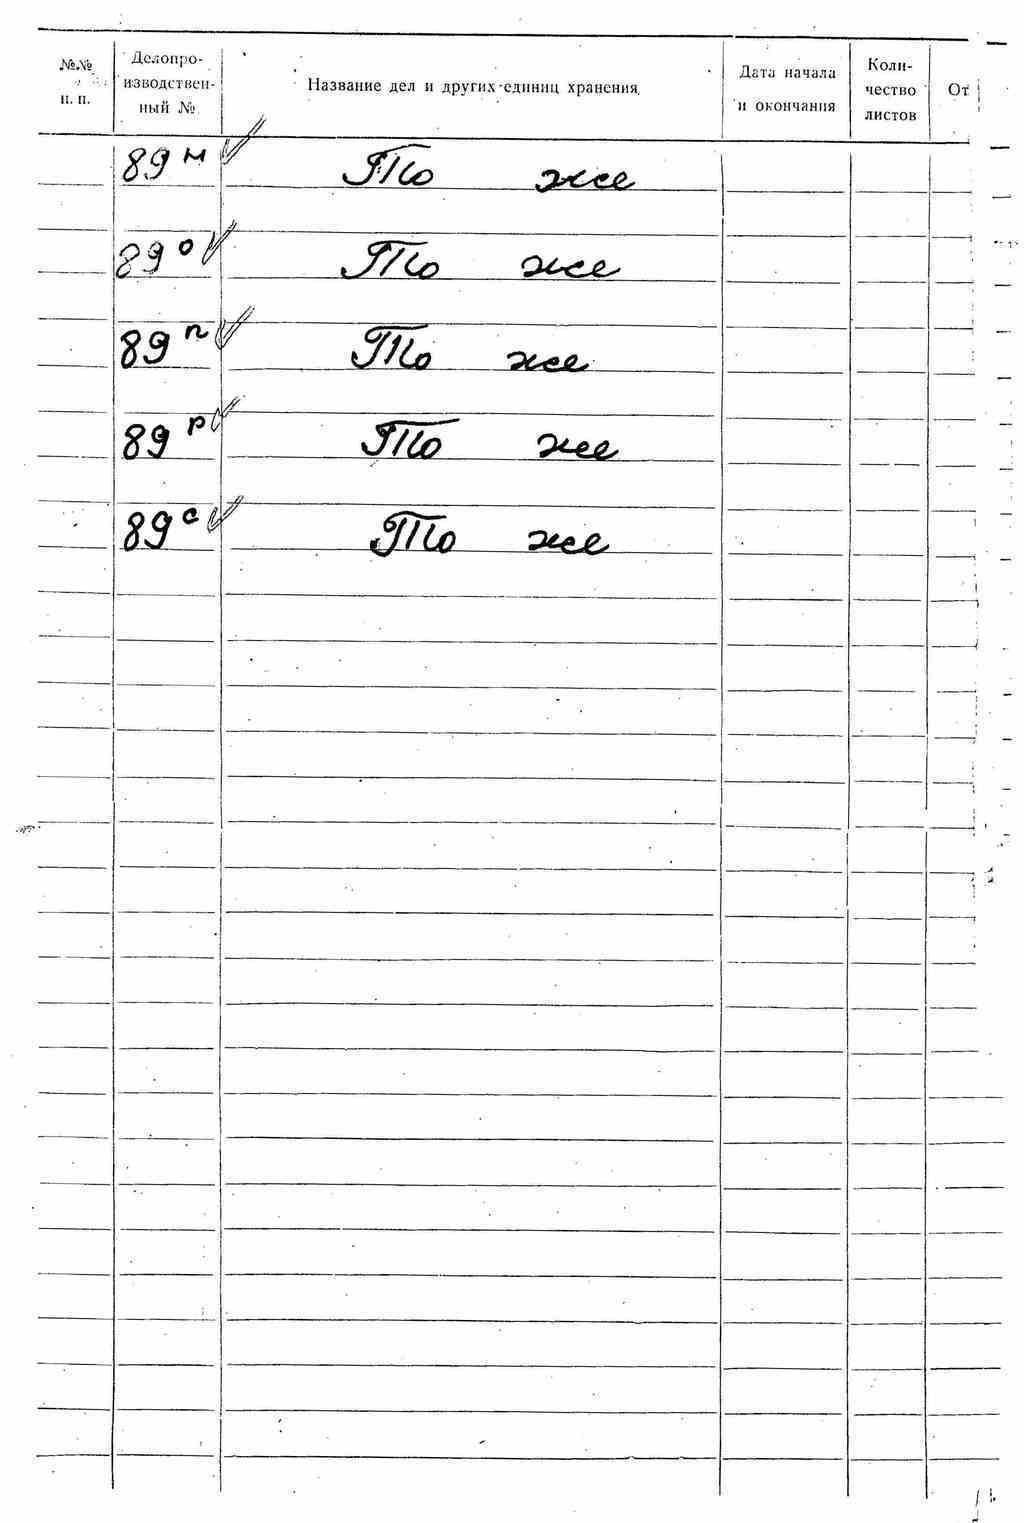 №№ п. п.
Делопроизводственный №
Название дел и других единиц хранения
Дата начала и окончания
Количество листов
От
89 н ✓ То же
89 о ✓ То же
89 п ✓ То же
89 р ✓ То же
89 с ✓ То же